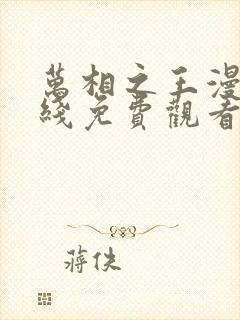 萬相之王漫
綫免費觀看
蔣佚